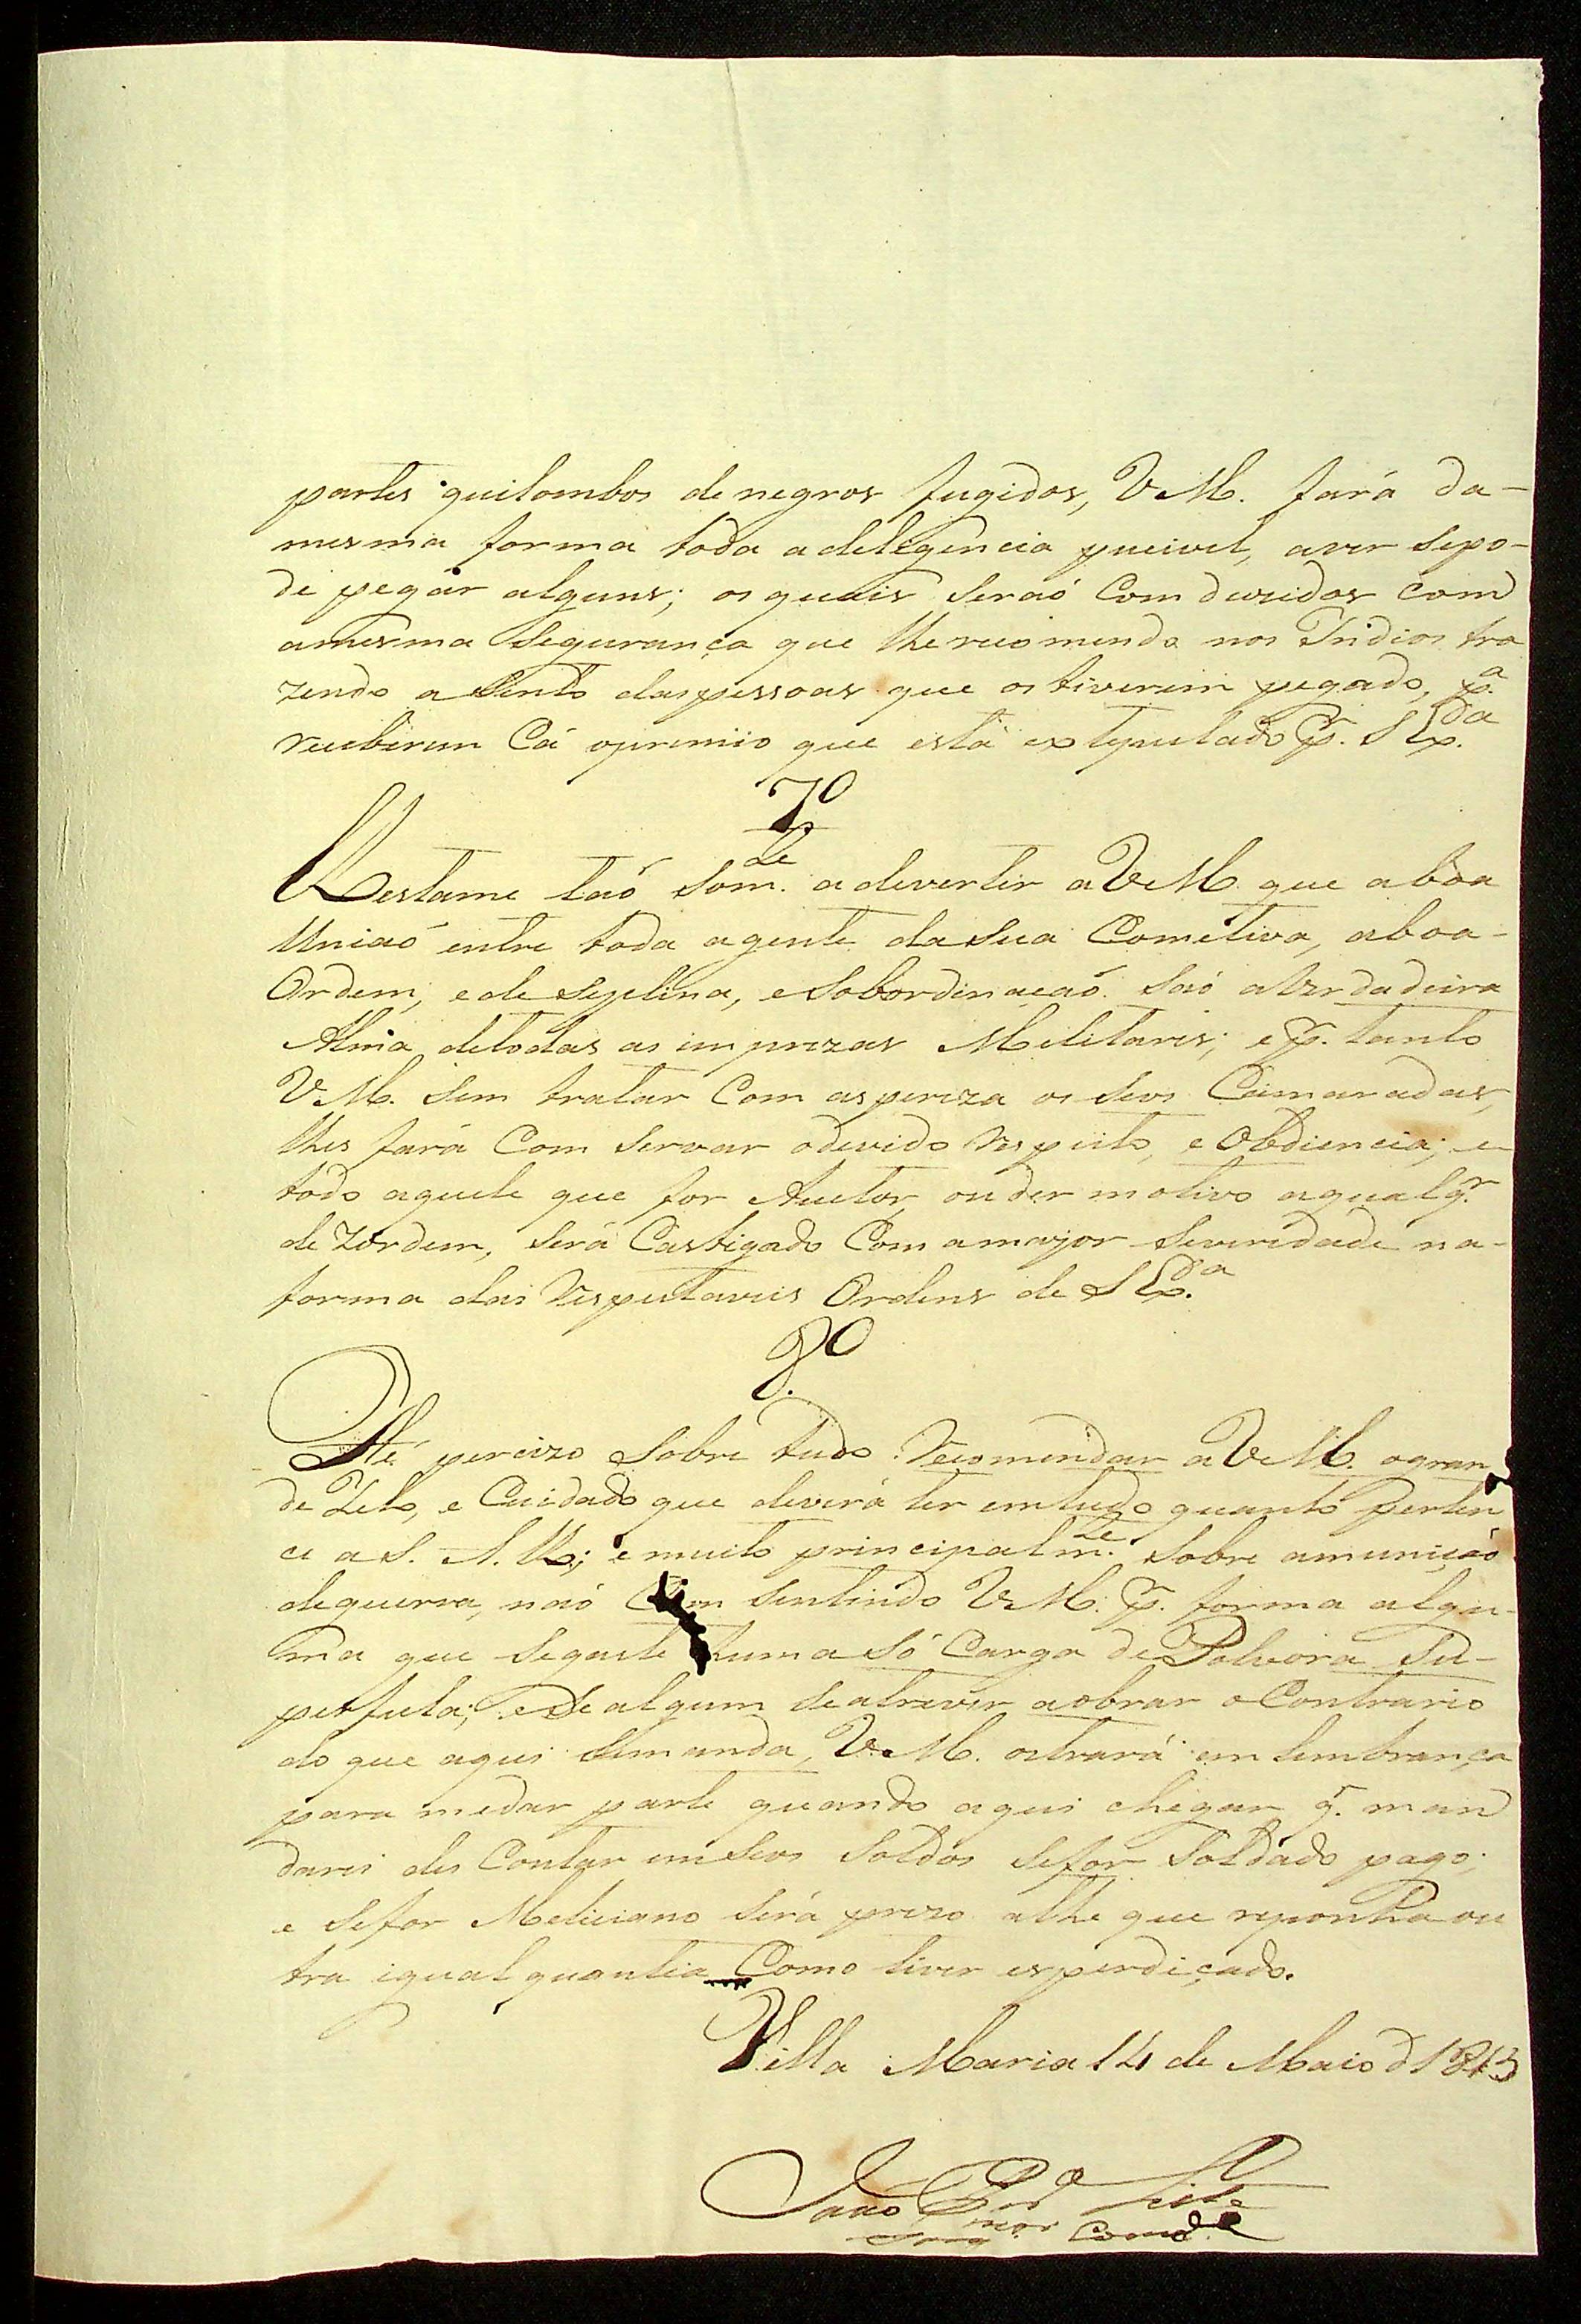 partes quilombos de negros fugidos, VM. fará da-
mesma forma toda a deligencia pucivel, aver sepo-
de pegár alguns; os quais seraó Com duzidos com
amesma Segurança que lhe recomendo nos Indios tra
zendo a Sento das pessoas que os tiverem pegado, pª.
receberem Cá opremio que está extepulado pr. S Exª.
7º.
Restame taó Somte. a devertir a VM. que a boa
Uniaó entre toda agente da Sua Cometiva, aboa-
Ordem, e de Seplina, e Sobordinaçaó. Saó a Verdadeira
Alma de todas as imprezas Melitares; e pr. tanto
VM. Sem tratar Com aspereza os Seos Camaradas,
lhes fará Com Servar o devido Respeito, e Obdiencia; e
todo aquele que for Autor, ou der motivo a qualqr.
de Zordem, Será Castigado Com amayor Severidade na-
forma das Respeitaveis Ordens de S Exª.
8º.
Hé percizo Sobre tudo Recomendar a VM. ogran
de Zelo, e Cuidado que deverá ter em tudo quanto perten
ce a S. A. R.; e muito principalmte. Sobre amuniçaó
de guerra, naó Com Sentindo VM. pr. forma algu-
ma que Segaste huma Só Carga de Polvora Su-
perfula; e Se algum Se atrever a obrar o Contrario
do que aqui Semanda, VM. otrará em lembrança
para medar parte quando aqui chegar qr. man
darei des Contar em Seos Soldos Sefor Soldado pago;
e Sefor Meliciano Será prezo athe que reponha ou
tra igual quantia Como tiver esperdiçado.
Villa Maria 14 de Maio d 1813
Joaó Leite
Comde